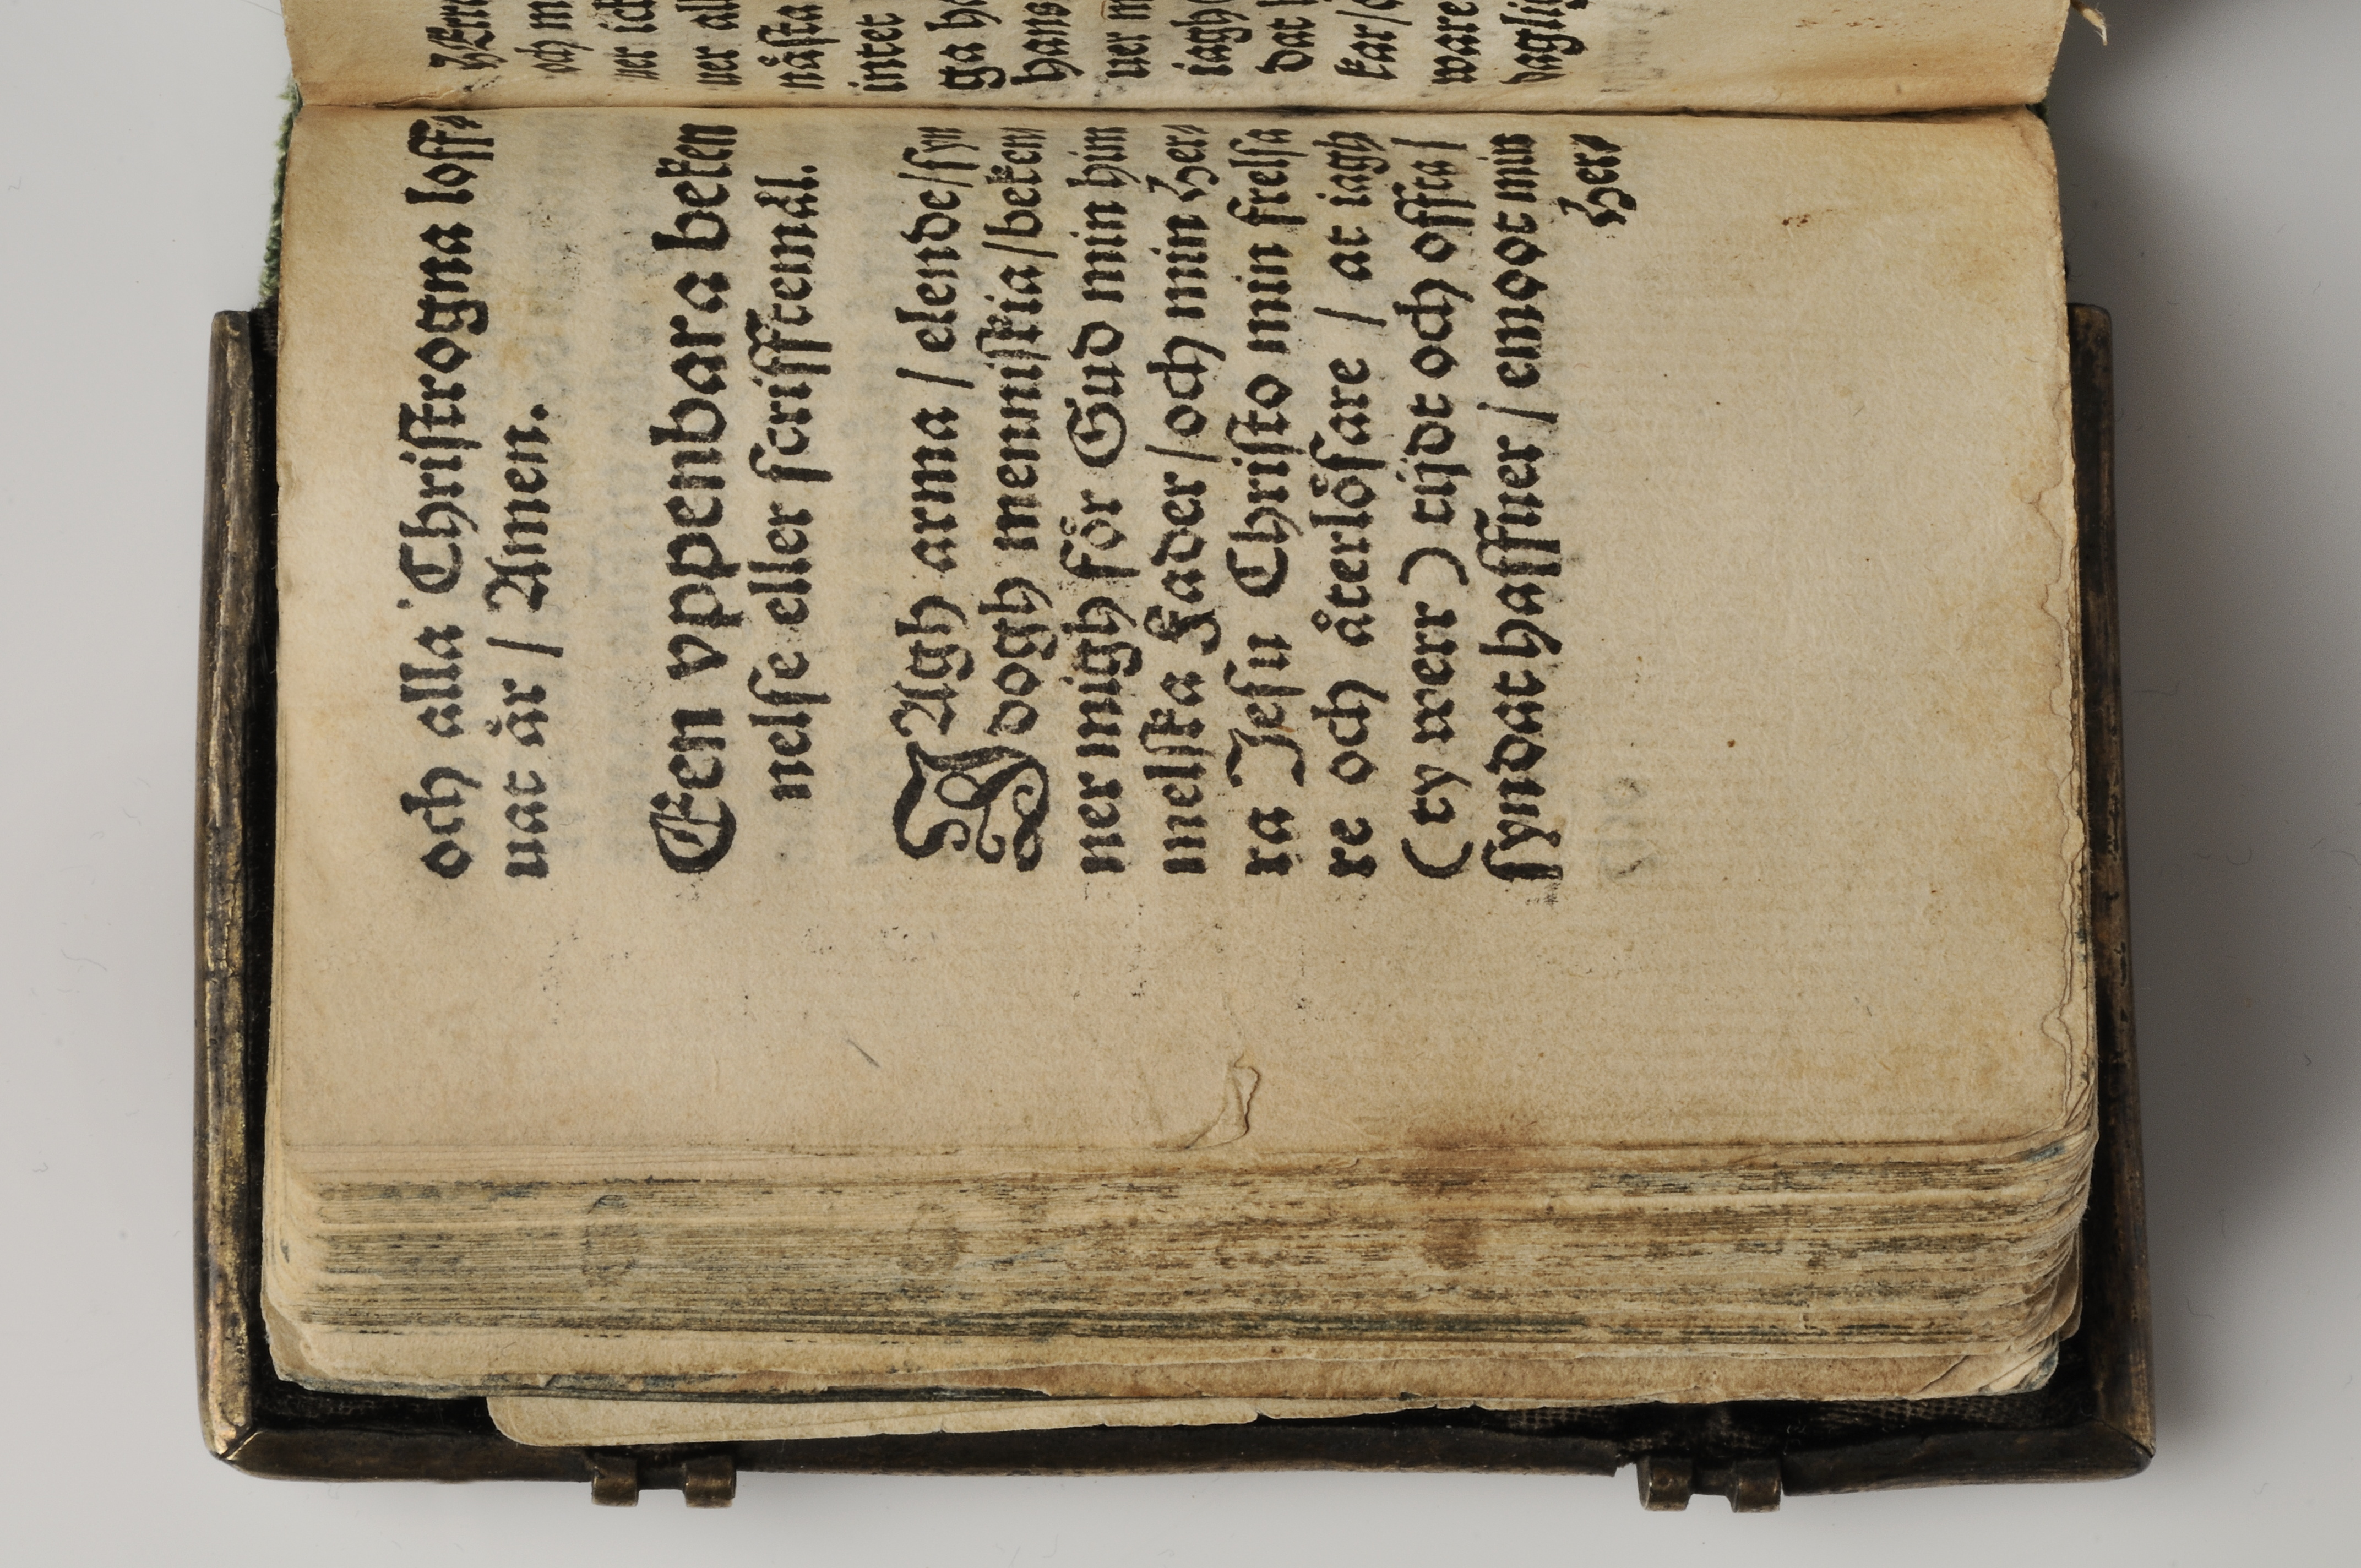 och alla Chriſtrogna loff⸗
uat år / Amen.
Een vppenbara beken
nelſe eller ſcrifftemål.
JAgh arma / elende/ſyn
dogh menniſkia/beken
ner migh fȯr Gud min him
melſka Fader/och min Her⸗
ra Jeſu Chriſto min frelſa
re och återlȯſare / at iagh
(ty werr) tijdt och offta/
ſyndat haffuer / emoot min
Her⸗
och
uer
uer
nåſta
intet
ga
hans
uer
iagh
dat
kar/
ware
daglig